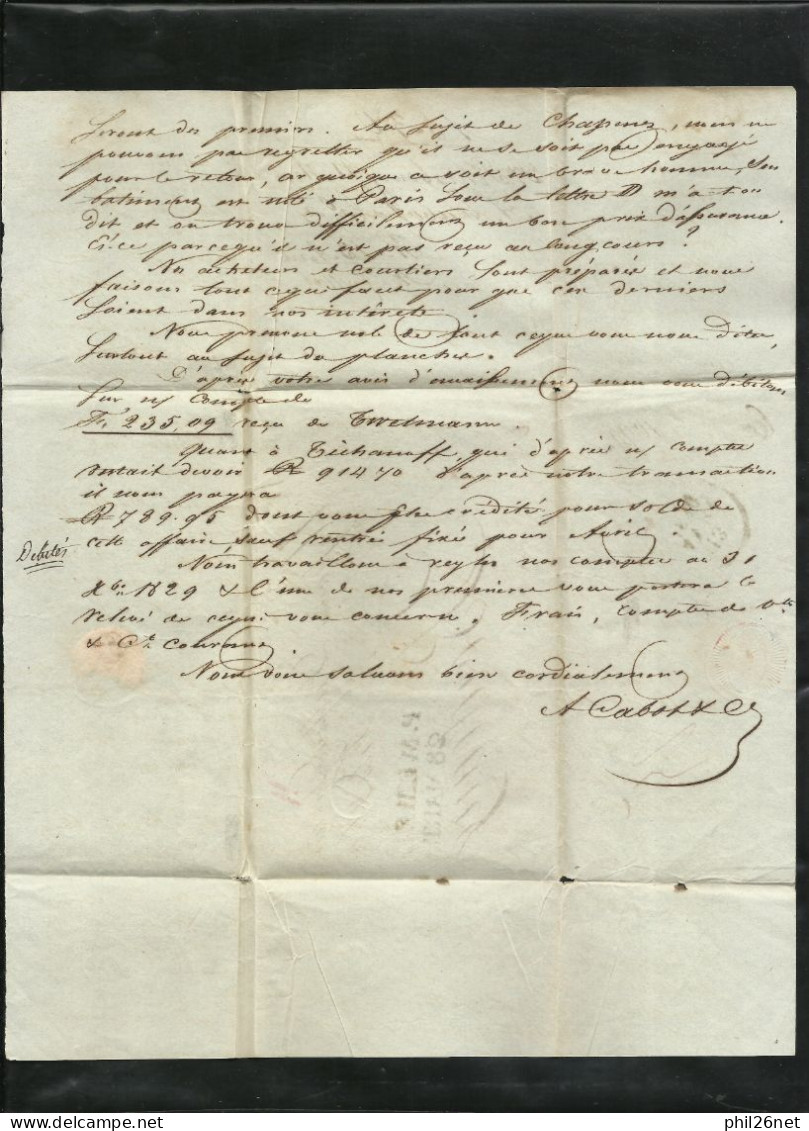 Seront des premiers. Au sujet de Chapenez, nous ne
pouvons pas regretter qu'il ne se soit pas engagé
pour le retour, car quoique ce soit un brave homme, son
batiment est noté à Paris sous la lettre D m'a t'on
dit et on trouve difficilement un bon prix d'assurance.
Est-ce parcequ'il n'est pas reçu au long cours?
Nos acheteurs et courtiers sont préparés et nous
faisons tout ce qui faut pour que ces derniers
soient dans nos intérêts.
Nous prenons note de tout ce que vous nous dites,
surtout au sujet de planches.
D'après votre avis d'encaissement nous vous débitons
sur n/ Compte de
Fs 235,09 reçu de Twelmann.
Quant à Tichanoff, qui d'après n/ compte
restait devoir R 914 70 d'après notre transaction
il nous payra
R 789.95 dont vous êtes crédités pour solde de
cette affaire sauf rentrée fixé pour Avril.
Débités
Nous travaillons à regler nos comptes au 31
Xbre 1829 & l'une de nos premières vous portera le
relevé de ce qui vous concerne. Frais, Compte de Vte
& Cte courant
Nous vous saluons bien cordialement
A Cabot & Cie
delcampe.net
phil26net